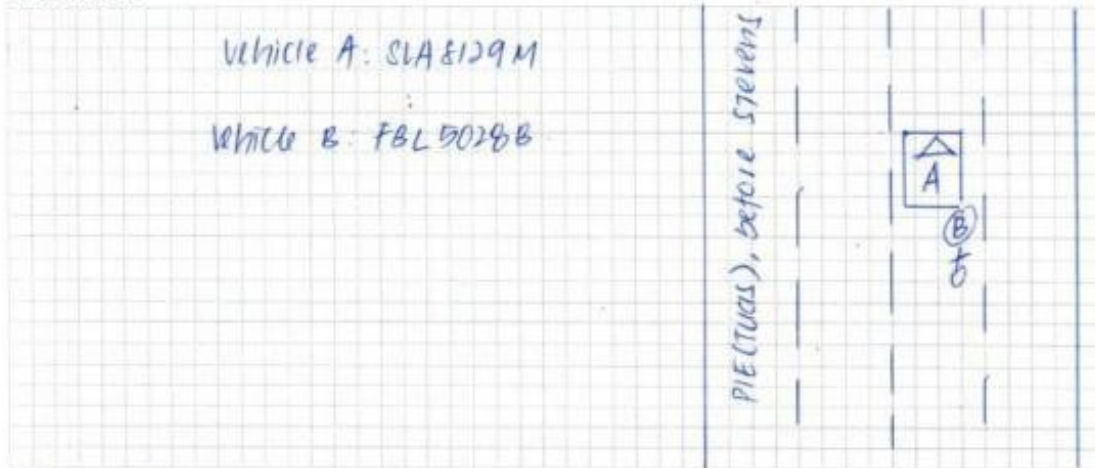 Vehicle A: SLA8129M
Vehicle B: FBL5028B
PIE(TUAS), before Stevens
A
B